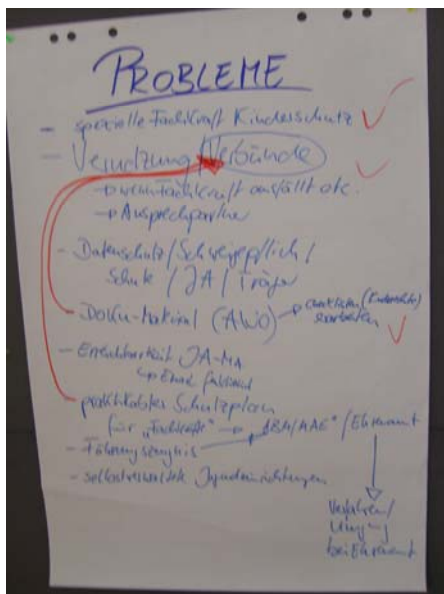 PROBLEME
- spezielle Fachkraft Kinderschutz
- Vernetzung/Verbünde
→ wenn Fachkraft ausfällt etc.
→ Ansprechpartner
- Datenschutz/Schweigepflicht/
Schule/JA/Träger
- Doku-Material (AWO) →
erarbeiten
- Erreichbarkeit JA-MA
- praktikabler Schutzplan
für "Fachkräfte" → "ABM/MAE"/Ehrenamt
- Führungszeugnis
- selbstverwaltete Jugendeinrichtungen
Verfahren/
Umgang
bei Ehrenamt